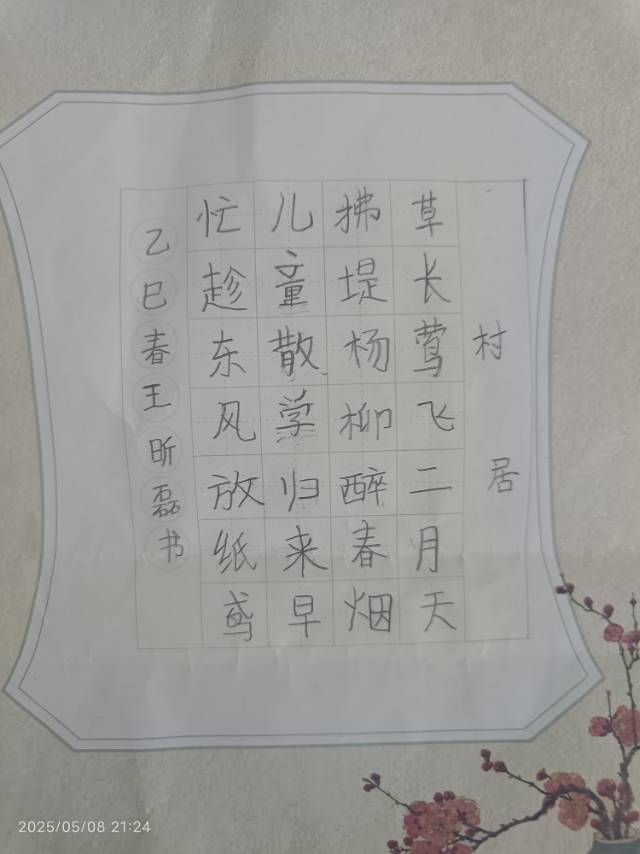 村居
草长莺飞二月天
拂堤杨柳醉春烟
儿童散学归来早
忙趁东风放纸鸢
乙巳春王昕磊书
2025/05/08 21:24